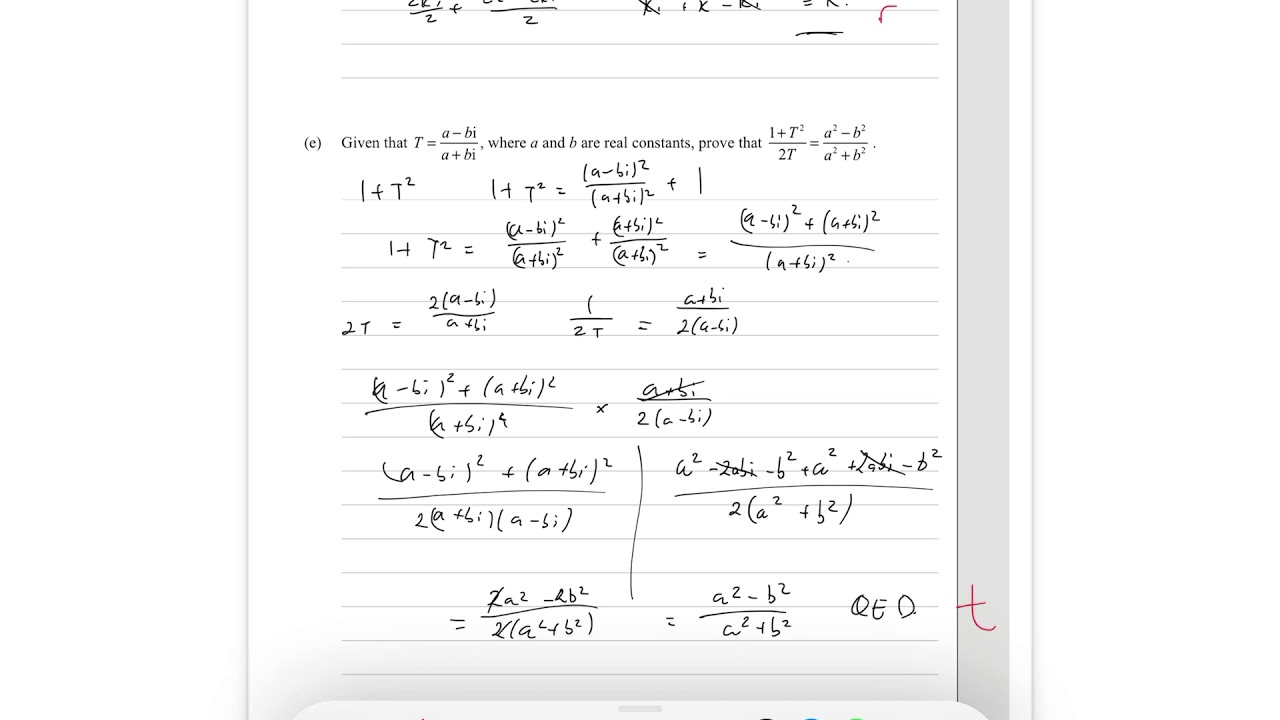 = k.
r
(e) Given that T = (a − bi)/(a + bi), where a and b are real constants, prove that (1 + T²)/(2T) = (a² − b²)/(a² + b²).
1 + T² 1 + T² = (a−bi)²/(a+bi)² + 1
1 + T² = (a−bi)²/(a+bi)² + (a+bi)²/(a+bi)² = ((a−bi)² + (a+bi)²)/(a+bi)².
2T = 2(a−bi)/(a+bi) 1/(2T) = (a+bi)/(2(a−bi))
((a−bi)² + (a+bi)²)/(a+bi)² × (a+bi)/(2(a−bi))
((a−bi)² + (a+bi)²)/(2(a+bi)(a−bi)) (a² − 2abi − b² + a² + 2abi − b²)/(2(a² + b²))
= (2a² − 2b²)/(2(a² + b²)) = (a² − b²)/(a² + b²) QED t